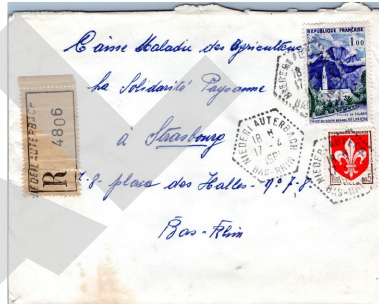 Caisse Maladie des Agriculteurs
La Solidarité Paysanne
à Strasbourg
7-8 place des Halles - nº 7-8
Bas-Rhin
R
NIEDERLAUTERBACH
4806
REPUBLIQUE FRANÇAISE
1,00
NIEDERLAUTERBACH
18 H
17-4
BAS-RHIN
LILLE